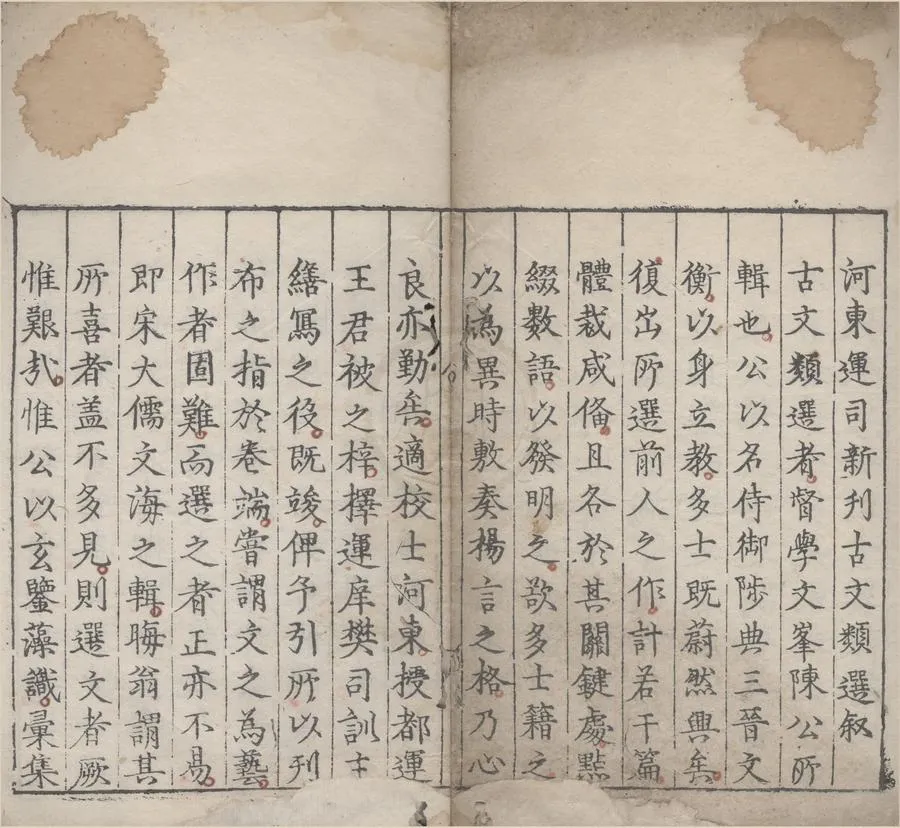 河東運司新刊古文類選叙
古文類選者督學文峯陳公所
輯也公以名侍御陟典三晉文
衡以身立教多士既蔚然興矣
復出所選前人之作計若干篇
體裁咸俻且各於其關鍵處點
綴數語以發明之欲多士籍之
以為異時敷奏揚言之格乃心
良亦勤矣適校士河東授都運
王君被之梓擇運庠樊司訓主
繕寫之役既竣俾予引所以刊
布之指於卷端嘗謂文之為藝
作者固難而選之者正亦不易
即宋大儒文海之輯晦翁謂其
所喜者盖不多見則選文者厥
惟艱㢤惟公以玄鑒藻識彚集